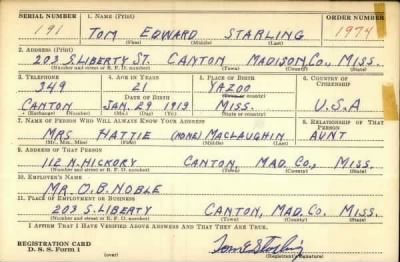 SERIAL NUMBER 1. NAME (Print) ORDER NUMBER
191 TOM EDWARD STARLING 1974
(First) (Middle) (Last)
2. ADDRESS (Print)
203 S. LIBERTY ST. CANTON MADISON CO., MISS.
(Number and street or R. F. D. number) (Town) (County) (State)
3. TELEPHONE 4. AGE IN YEARS 5. PLACE OF BIRTH 6. COUNTRY OF CITIZENSHIP
349 21 YAZOO
DATE OF BIRTH (Town or county)
CANTON JAN. 29 1919 MISS. U.S.A
(Exchange) (Number) (Mo.) (Day) (Yr.) (State or country)
7. NAME OF PERSON WHO WILL ALWAYS KNOW YOUR ADDRESS 8. RELATIONSHIP OF THAT PERSON
MRS HATTIE (NONE) MACLAUGHIN AUNT
(Mr., Mrs., Miss) (First) (Middle) (Last)
9. ADDRESS OF THAT PERSON
112 N. HICKORY CANTON, MAD. CO., MISS
(Number and street or R. F. D. number) (Town) (County) (State)
10. EMPLOYER'S NAME
MR. O. B. NOBLE
11. PLACE OF EMPLOYMENT OR BUSINESS
203 S. LIBERTY CANTON, MAD. CO. MISS
(Number and street or R. F. D. number) (Town) (County) (State)
I AFFIRM THAT I HAVE VERIFIED ABOVE ANSWERS AND THAT THEY ARE TRUE.
REGISTRATION CARD
D. S. S. Form 1 (over) Tom E Starling
(Registrant's signature)